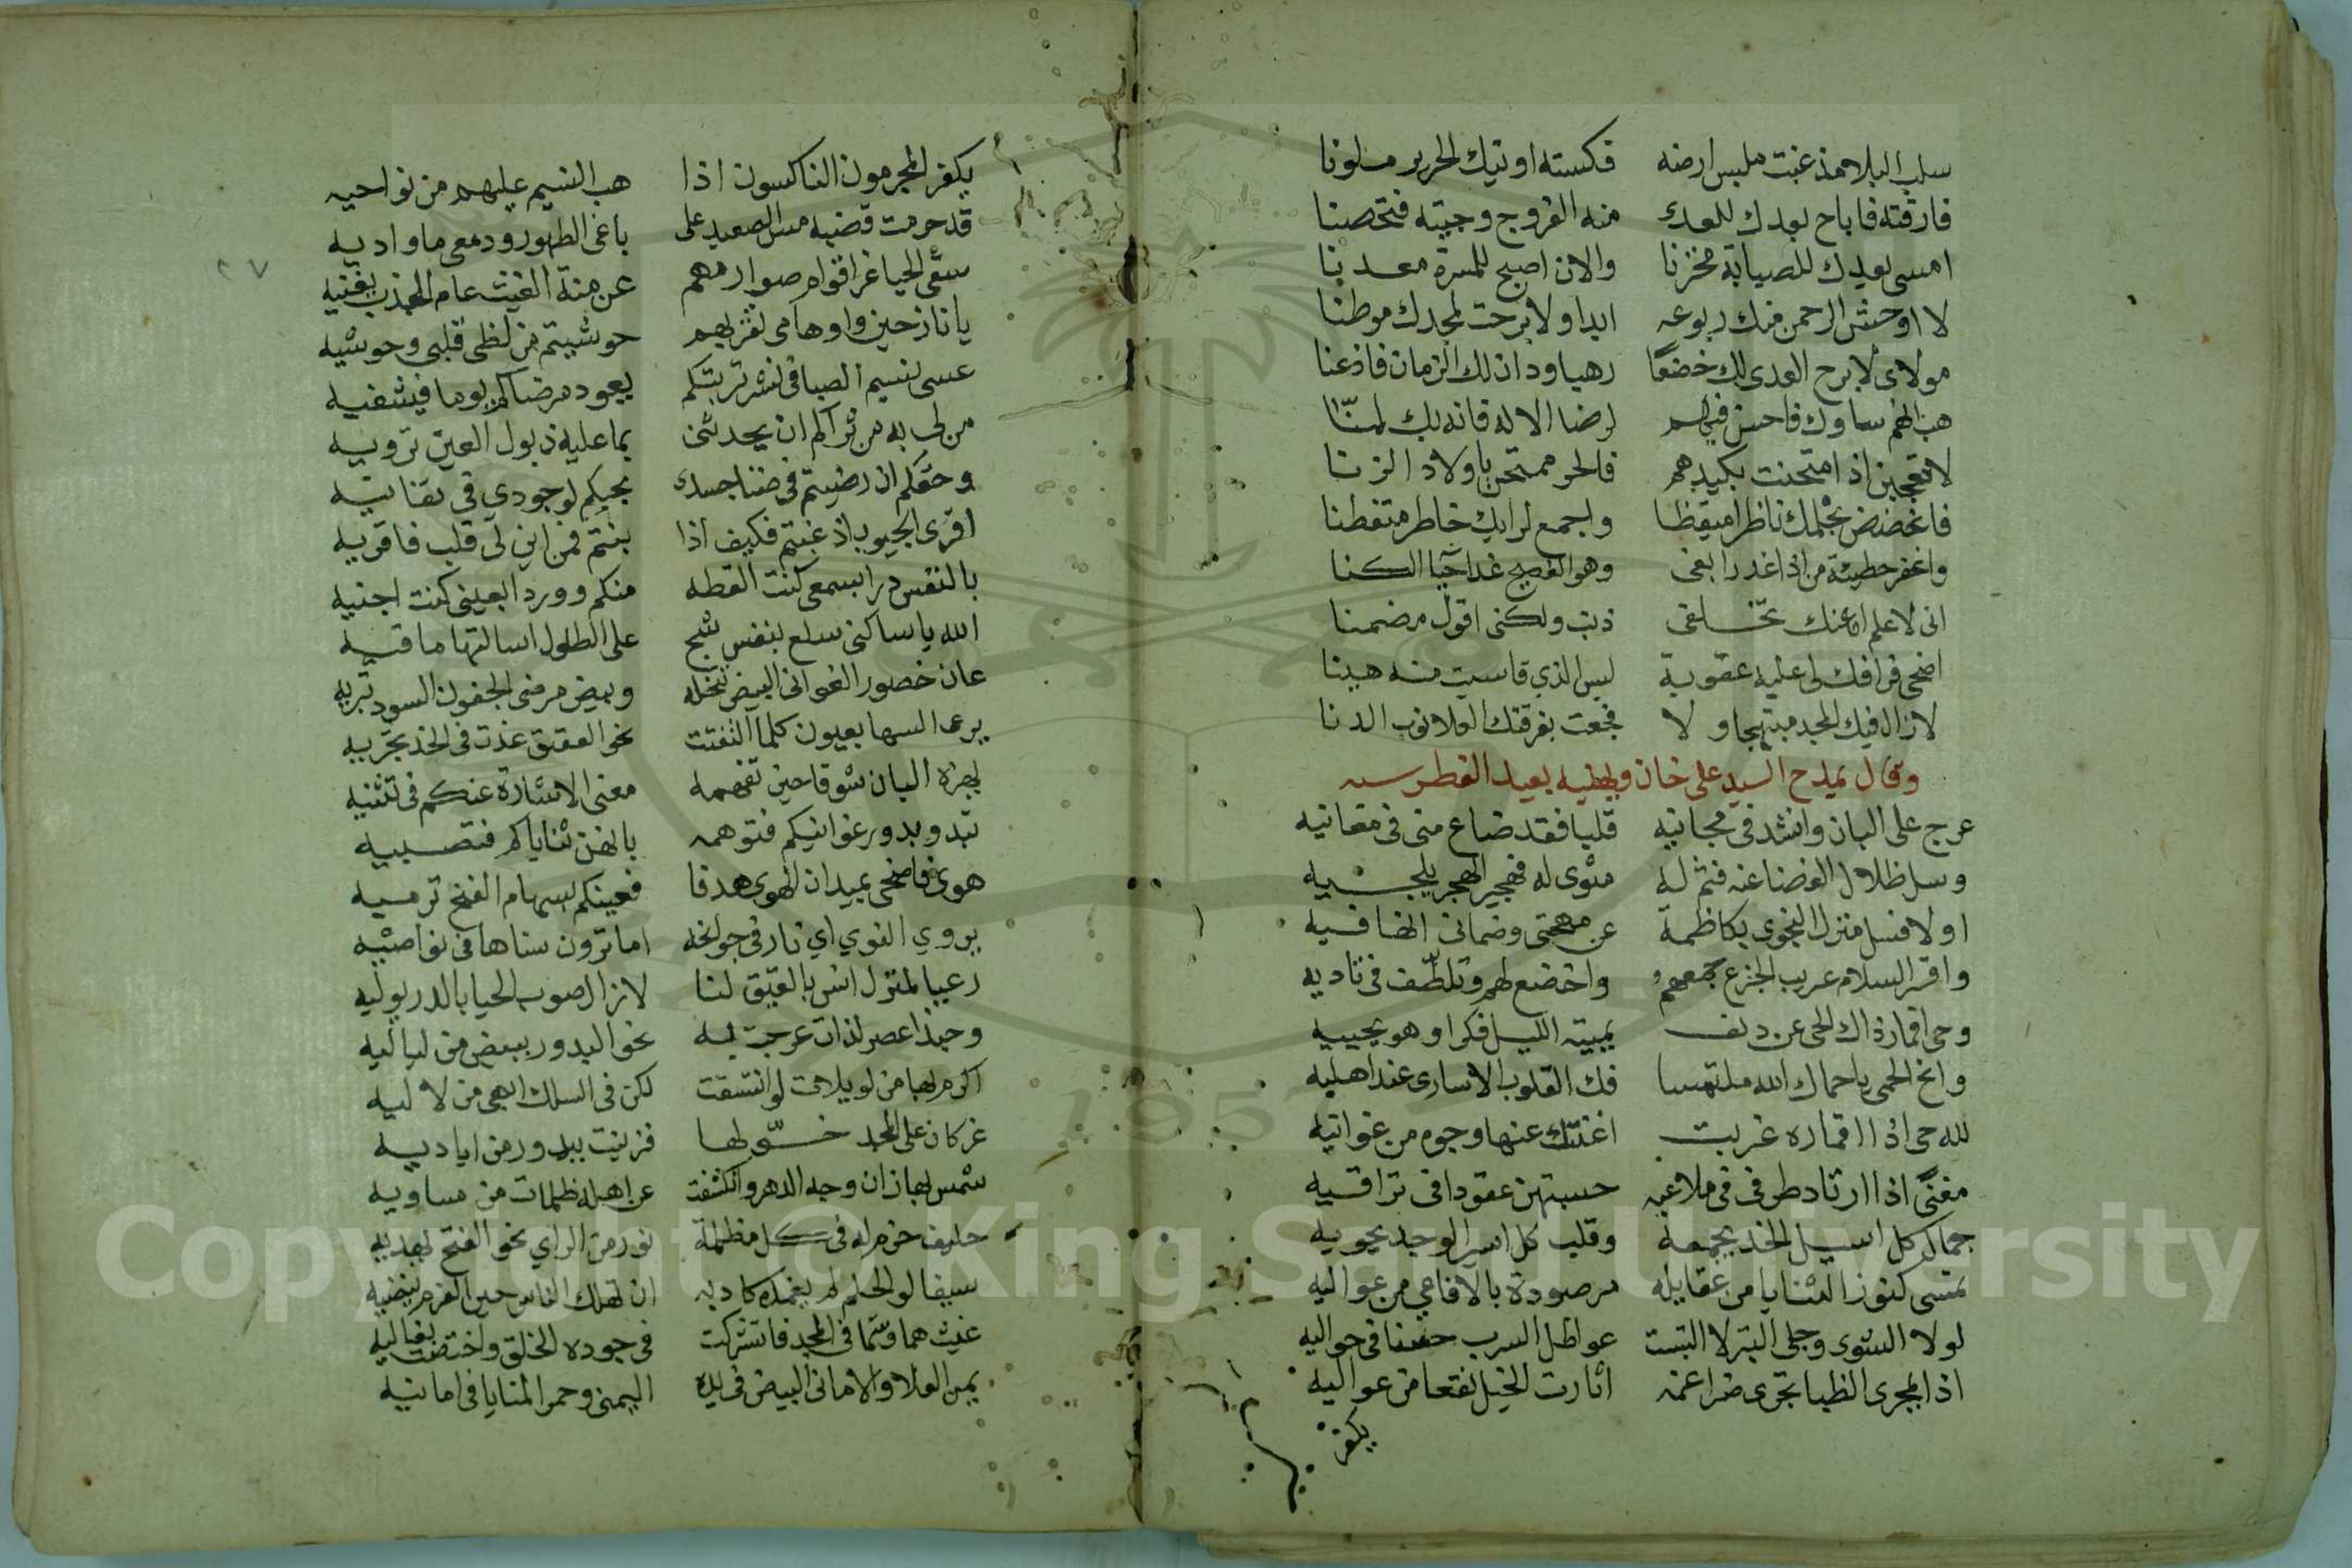 سلب البلا مذ غبت ملبس ارضه فكسته اوتيك الحرير ملونا
فارقته فاباح بعدك للعدى منه الفروج وجيته فتحصنا
امسى بعيدك للصبابة مخزنا والان اصبح للمسرة معدنا
لا اوحش الرحمن منك ربوعه ابدا ولا برحت لمجدك موطنا
مولاى لا برح العدى لك خضعا رهبا ودان لك الزمان فاذعنا
هب انهم ساوك فاحسن فيهم لرضا الاله فانه بك
لا تعجبن اذا امتحنت بكيدهم فالحر ممتحن باولاد الزنا
فاغضض بحلمك ناظرا متيقظا واجمع لرايك خاطرا متفطنا
واغفر خطيئة من اذا غدرا بغى وهو الفصيح غدا
انى لاعلم ان عنك تخلفى ذنب ولكنى اقول مضمنا
اضحى فراقك لى عليه عقوبة ليس الذي قاسيت منه هينا
لازال فيك المجد مبتهجا ولا فجعت بفرقتك العلا نوب الدنا
وقال يمدح السيد على خان ويهنيه بعيد الفطر سنه
عرج على البان وانشد فى مجانيه قلبا فقد ضاع منى فى مغانيه
وسل ظلال الغضا عنه فثم له مثوى له فهجير الهجر يلجيه
اولا فسل منزل النجوى بكاظمة عن مهجتى وضمانى انها فيه
واقر السلام عريب الجزع جمعهم واخضع لهم وتلطف فى ناديه
وحى اقمار ذاك الحى عن دنف يميته الليل فكرا وهو يحييه
وانح الحمى يا حماك الله ملتمسا فك القلوب الاسارى عند اهليه
لله حى اذا اقماره غربت اغنتك عنها وجوه من غوانيه
مغنى اذا ارتاد طرفى فى ملاعبه حسبتهن عقودا فى تراقيه
جمالكل اسيل الخد يجمعه وقلب كل اسير الوجد يحويه
تمسى كنوز الثنايا من عقايله مرصودة بالافاعي من عواليه
لولا الشوى وجلى التبر لا التبست عواطل السرب حسنا فى حواليه
اذا المجرى الظبا تجرى ضراغمه اثارت الخيل نقعا من عواليه
يكفر
يكفر المجرمون الناكسون اذا هب النسيم عليهم من نواحيه
قد حرمت قضبه مس الصعيد على باغى الطهور ودمعى ماء واديه
سقى الحيا غر اقوام صوارمهم عن منة الغيث عام الجدب يغنيه
يا نازحين واوهامى تقربهم حوشيتم من لظى قلبى وحوشيه
عسى نسيم الصبا فى نشر تربتكم يعود مرضاكم يوما فيشفيه
من لى به من ثراكم ان يحدثنى بما عليه ذيول العين ترويه
وحقكم ان رضيتم فى ضنا جسدى بحبكم لوجودي فى تفانيه
افرى الجيوب اذ غبتم فكيف اذا بنتم فمن اين لى قلب فاقويه
بالنفس درا بسمعى كنت القطه منكم وورد العينى كنت اجنيه
الله ياساكنى سلع بنفس شج على الطلول اسالتها ماقيه
عان خصور الغوانى البيض تنحله وبيض مرضى الجفون السود تبريه
يرعى السها بعيون كلما التفتت نحو العقيق غدت فى الخد تجريه
يهزه البان شوقا حين تفهمه معنى الاشارة عنكم فى تثنيه
تبدو بدور غوانيكم فتوهمه بانهن ثناياكم فتصبيه
هوى فاضحى بميدان الهوى هدفا فعينكم بسهام الغنج ترميه
يروي النوي اي نار فى جوانحه اما ترون سناها فى نواصيه
رعيا لمنزل انس بالعقيق لنا لازال صوب الحيا بالدر يوليه
وحبذا عصر لذات عرجت به نحو البدور ببيض من لياليه
اكرم بها من لويلات لو انتسقت لكن فى السلك ابهى من لاليه
غر كان على المجد خولها فزينت ببدور من اياديه
شمس بها زان وجه الدهر وانكشفت عن اهله ظلمات من مساويه
حليف حزم له فى كل مظلمة نور من الراي نحو الفتح يهديه
سيفا لو الحلم لم يغمده كاد به ان تهلك الناس حين العزم ينضيه
غيث هما وسما فى المجد فاشتركت فى جوده الخلق واختصت معاليه
يمن العلا والامانى البيض فى يده اليمنى وحمر المنايا فى امانيه